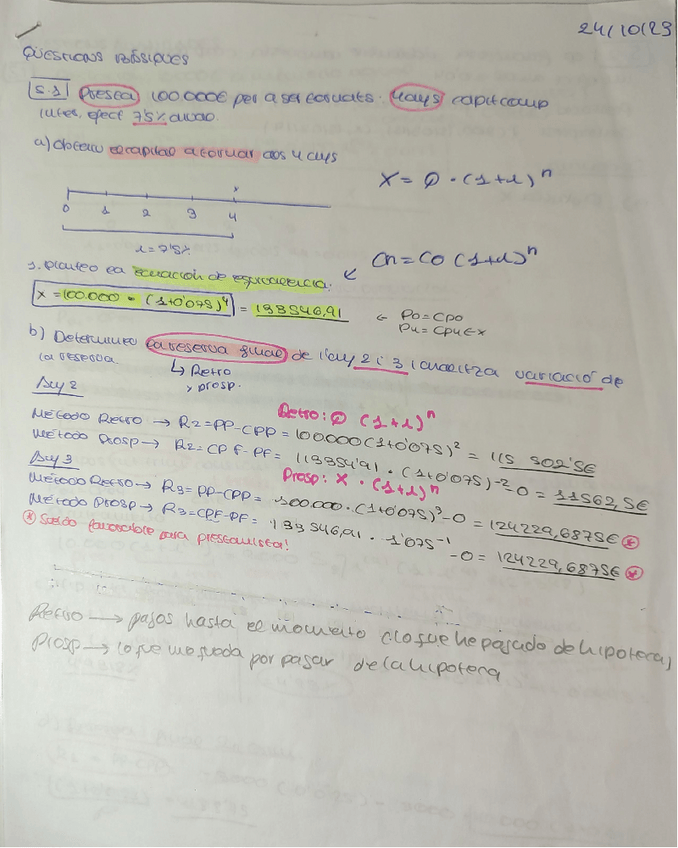 24/10/23
QÜESTIONS BÀSIQUES
5.1 Presta 100.000€ per a ser tornats. 4 anys capit comp
inter. efect 7'5% anual
a) Obteniu el capital a tornar als 4 anys
X = Q · (1+i)^n
x
0 1 2 3 4
i = 7'5%
Cn = Co (1+i)^n
1. Planteo la ecuación de equivalencia:
X = 100.000 · (1+0'075)^4 = 133546,91
Po = Cpo
P4 = Cp4 ∈ x
b) Determineu la reserva final de l'any 2 i 3 i analitza variació de
la reserva.
↳ Retro
→ prosp.
Any 2
Retro: Q (1+i)^n
Método Retro → R2 = PP-CPP = 100.000 (1+0'075)^2 = 115 302'5€
Método Prosp → R2 = CPF-PF = 113354'91 · (1+0'075)^-2 - 0 = 11562,5€
Any 3
Prosp: X · (1+i)^n
Método Retro → R3 = PP-CPP = 100.000 · (1+0'075)^3 - 0 = 124229,6875€ *
Método Prosp → R3 = CPF-PF = 133546,91 · 1'075^-1 - 0 = 124229,6875€ *
* Saldo favorable para prestamista!
Retro → pagos hasta el momento (lo que he pagado de hipoteca)
Prosp → lo que me queda por pagar de la hipoteca